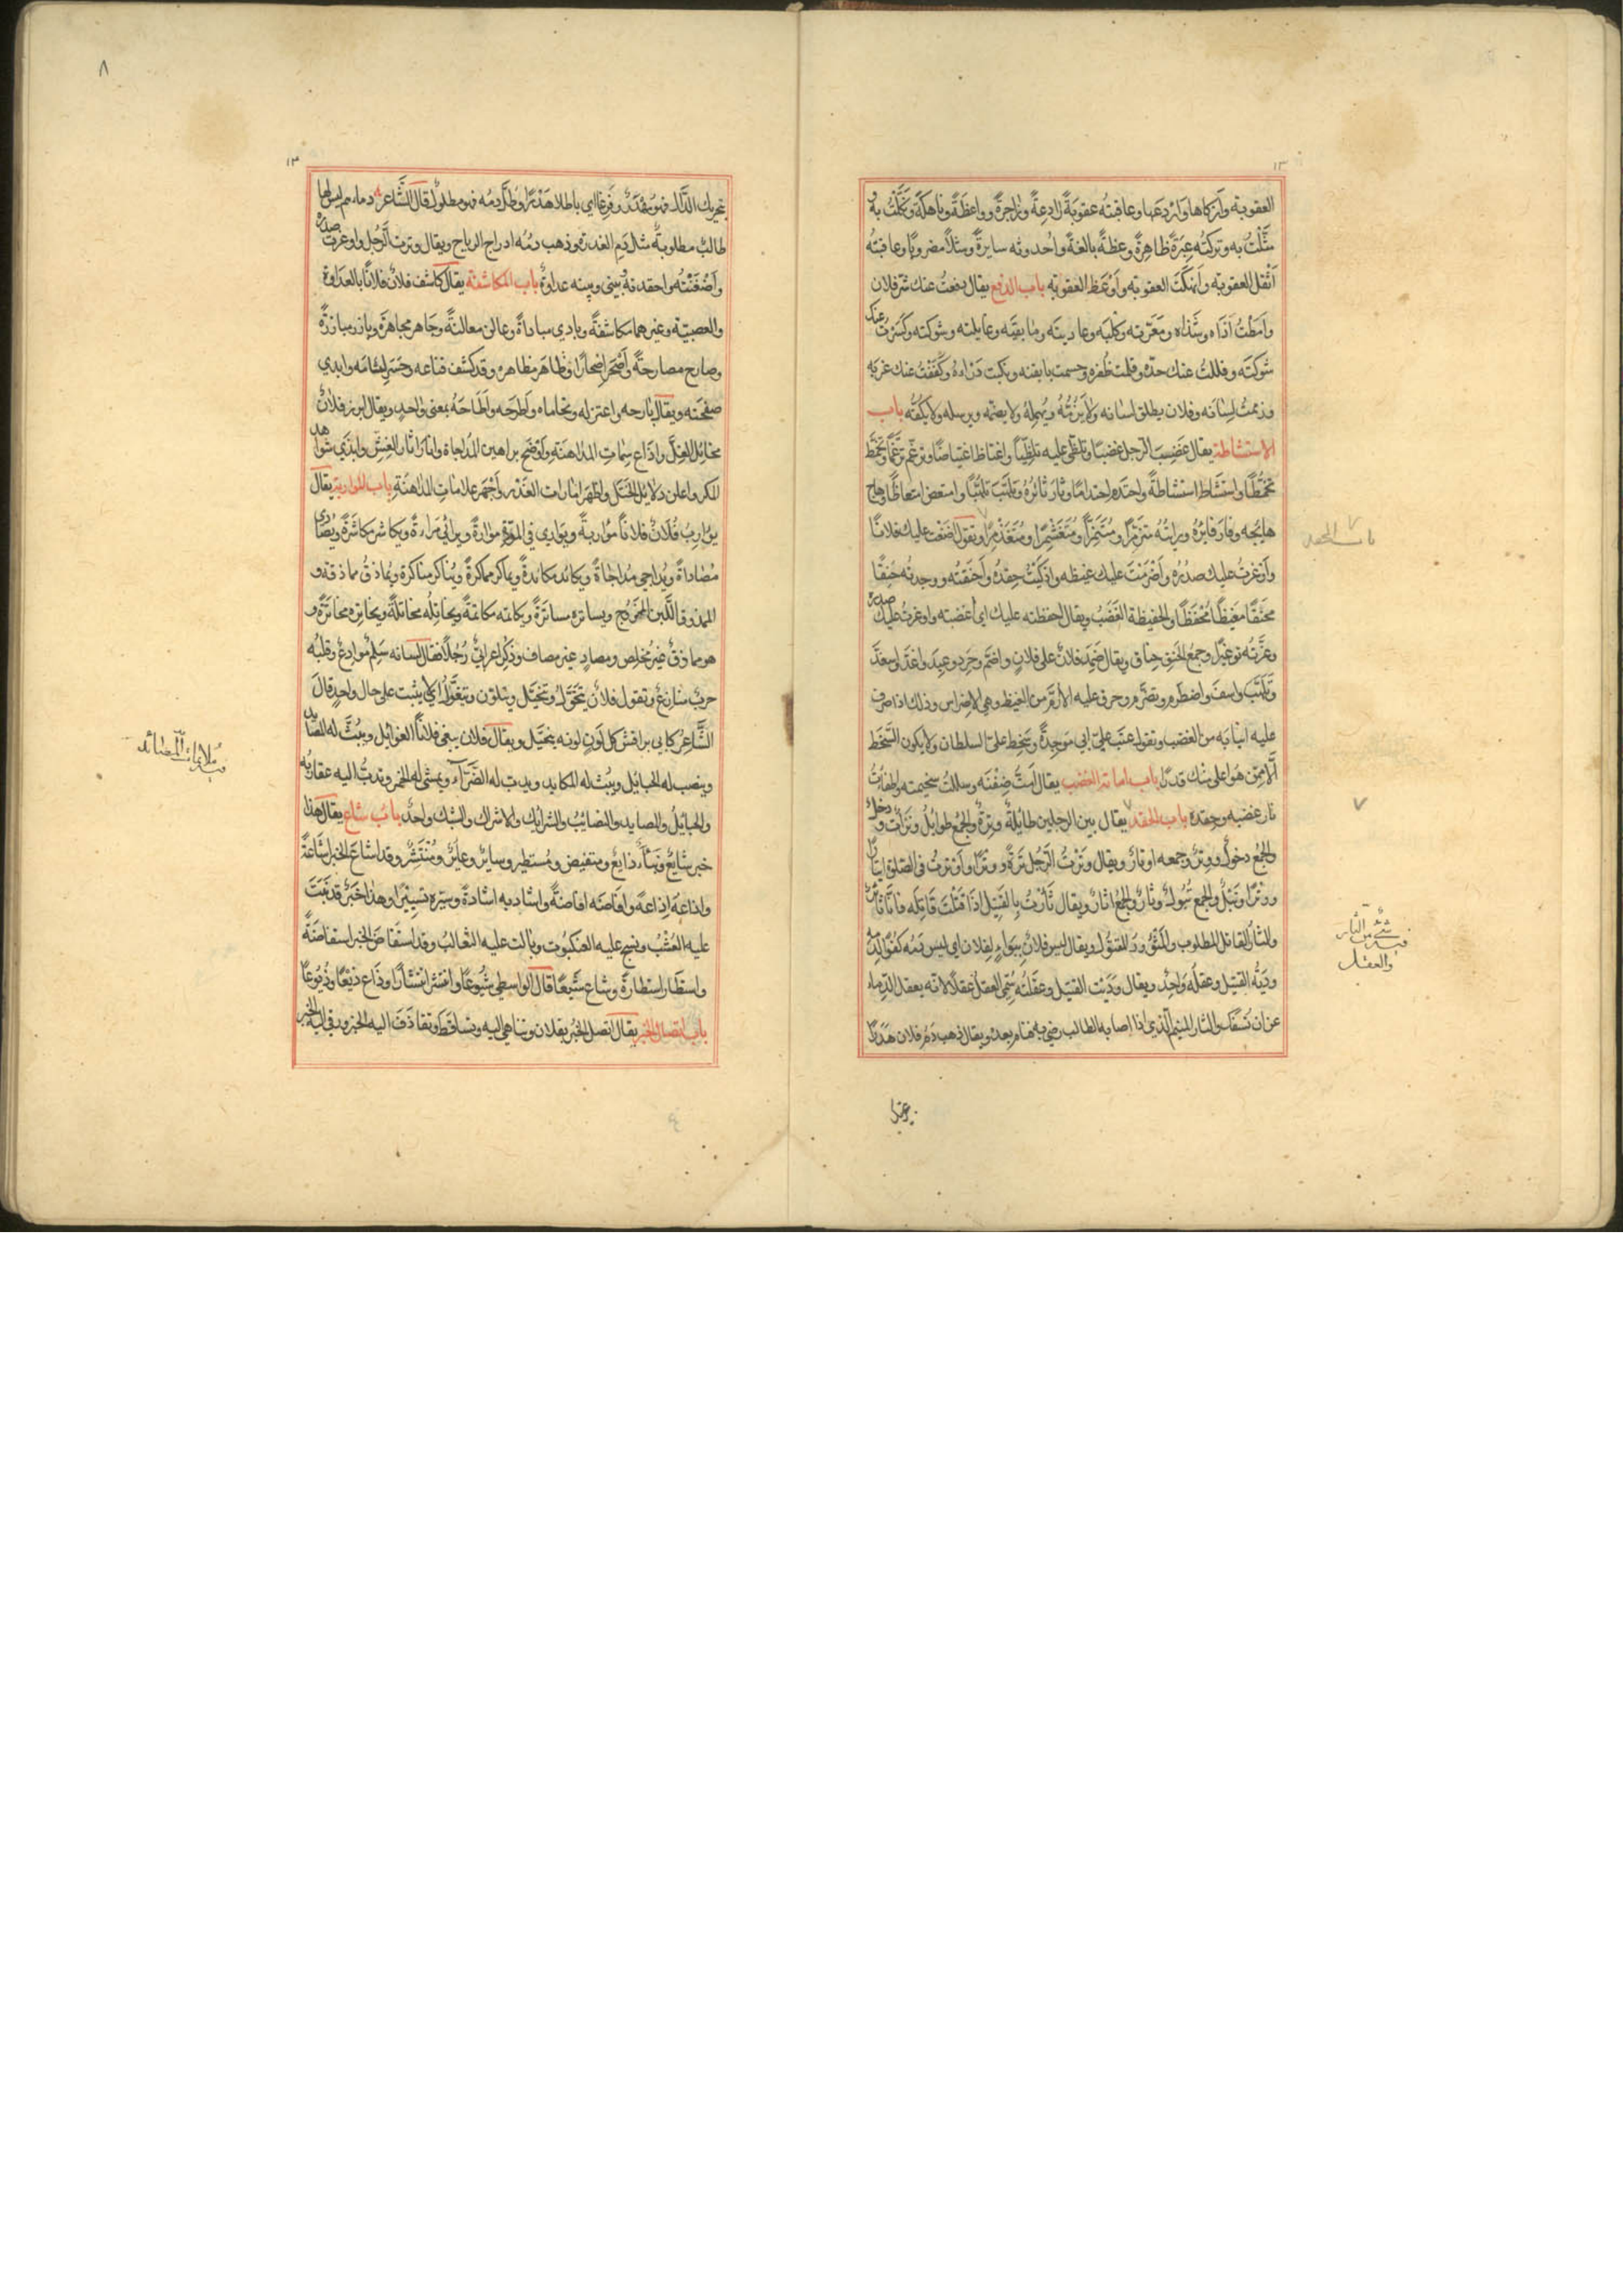 العقوبة وازكاها واردعها وعاقبته عقوبةً رادعةً وزاجرةً وواعظةً وناهكةً ونكّلت به و
مثّلت به وتركته عبرةً ظاهرةً وعظةً بالغةً واحدوثه سايرةً ومثلاً مضروبًا وعاقبته
اثقل العقوبة وانهكت العقوبة واوعظ العقوبة باب الدفع يقال دفعت عنك شرّ فلان
وامطت اذاه وشذاه ومعرّته وكلبه وعاديته وبايقته وغايلته وشوكته وكسرت عنك
شوكته وفللت عنك حدّه وقلمت ظفره وحسمت بايقته ونكبت درأه وكففت عنك غربه
وذممت لسانه وفلان يطلق لسانه ولا يزنّه ويهمله ولا يضمّه ويرسله ولا يكفّه باب
الاستشاطة يقال غضب الرجل غضبًا وتلظّى عليه تلظّيًا واغتاظ اغتياظًا وتزغّم تزغّمًا وتخمّط
تخمّطًا واستشاط استشاطةً واحتدم احتدامًا وثار ثائره وتلهّب تلهّبًا وامتعض امتعاضًا وهاج
هايجه وفار فايره ورايته متزمّرًا ومتنمّرًا ومتغشمرًا ومتغذمرًا وتقول اضفت عليك فلانًا
واوغرت عليك صدره واضرمت عليك غيظه واذكيت حقده واحنقته ووجدته حنقًا
محنقًا مغيظًا محفظًا والحفيظة الغضب ويقال احفظته عليك اي اغضبته واوغرت عليك صدره
وغرّته توغيرًا وجمع الحنق حناق ويقال ضمد فلان على فلان واضمّ وحرد وعبد واغدّ واسمغدّ
وتلهّب واسف واضطرم وتضرّم وحرق عليه الأرّم من الغيظ وهي الاضراس وذلك اذا صرف
عليه انيابه من الغضب وتقول عتب عليّ ابي موجدةً وسخط عليّ السلطان ولا يكون السّخط
الّا ممّن هو اعلى منك قدرًا باب اماتة الغضب يقال امتّ ضغنه وسللت سخيمته واطفأت
نار غضبه وحقده باب الحقد يقال بين الرجلين طائلةٌ وترةٌ والجمع طوايل وترات ودخل
والجمع دخول ووترٌ وجمعه اوتار ويقال وترت الرّجل ترةً ووترًا واوترت في الصلوة ايتارًا
ووترًا وتبلٌ والجمع تبول وثارٌ والجمع اثار ويقال ثأرت بالقتيل اذا قتلت قاتله فانا ثائرٌ
والثأر القاتل المطلوب والمثؤر دم المقتول ويقال ليس فلانٌ ببواءٍ لفلان اي ليس دمه كفؤًا لدمه
ودية القتيل وعقله واحدٌ ويقال وديت القتيل وعقلته سمّي العقل عقلاً لانه يعقل الدّماء
عن ان تسفك والثار المنيم الّذي اذا اصابه الطالب رضي به فنام بعده ويقال ذهب دم فلان هدرًا
باب الحقد
فيه شئ من الثأر
والعقل
بتحريك الدّال فهو مهدرٌ وفرغًا اي باطلا هدرًا وطلّ دمه فهو مطلول قال الشّاعر دماءهم ليس لها
طالبٌ مطلوبةٌ مثل دم العذرة وذهب دمه ادراج الرياح ويقال وترت الرّجل واوغرت صدره
واضغنته واحقدته بيني وبينه عداوةٌ باب المكاشفة يقال كاشف فلانٌ فلانًا بالعداوة
والعصبية وغيرهما مكاشفةً وبادي مباداةً وعالن معالنةً وجاهر مجاهرةً وبارز مبارزةً
وصارح مصارحةً واصحر اصحارًا وظاهر مظاهره وقد كشف قناعه وحسر لثامه وابدي
صفحته ويقال بارحه واعتزله وتحاماه واطرحه واطاحه بمعنى واحدٍ ويقال ابرز فلانٌ
مخايل الغلّ واذاع سمات المداهنة واوضح براهين المداجاة وانار اثار الغشّ وابدي شواهد
المكر واعلن دلايل الختل واظهر امارات الغدر واجهر علامات المداهنة باب المواربة يقال
يوارب فلانٌ فلانًا مواربةً ويواري في المودّة مواراةً ويرائي مراءةً ويكاشر مكاشرةً ويصادي
مصاداةً ويداجي مداجاةً ويكائد مكائدةً ويماكر مماكرةً ويناكر مناكرة ويماذق مماذقه و
الممذوق اللّبن الممزوج ويساتره مساترةً ويكاتمه مكاتمةً ويخاتله مخاتلةً ويخاتره مخاترةً و
هو مماذقٌ غير مخلصٍ ومصادٍ غير مصاف وذكر اعرابيٌّ رجلاً فقال لسانه سلمٌ موادعٌ وقلبه
حربٌ منازعٌ وتقول فلانٌ يتحوّل ويتخيّل ويتلون ويتغيّر اي لا يثبت على حال واحدٍ قال
الشّاعر كابي براقش كل لونٍ لونه يتخيّل ويقال فلان يبغي فلانًا الغوائل ويبثّ له المصايد
وينصب له الحبايل ويبثّ له المكايد ويدبّ له الضّرّاء ويمشي له الخمر وتدبّ اليه عقاربه
والحبايل والمصايد والنصائب والشرائك والاشراك والشبك واحدٌ باب شاع يقال هذا
خبر شايعٌ ونباءٌ ذايعٌ ومستفيض ومستطير وساير وعايرٌ ومنتشرٌ وقد اشاع الخبر اشاعةً
واذاعه اذاعةً وافاضه افاضةً واشاد به اشادةً وسيّره تسييرًا وهذا خبرٌ قد نبت
عليه العشب ونسج عليه العنكبوت وبالت عليه الثعالب وقد استفاض الخبر استفاضةً
واستطار استطارةً وشاع شيعًا قال الواسطي شيوعًا وانتشر انتشارًا وذاع ذيعًا وذيوعًا
باب اتصال الخبر يقال اتصل الخبر بفلان وتناهي اليه وتساقط وتقاذف اليه الخبر ورقى اليه الخبر
١٣
٨